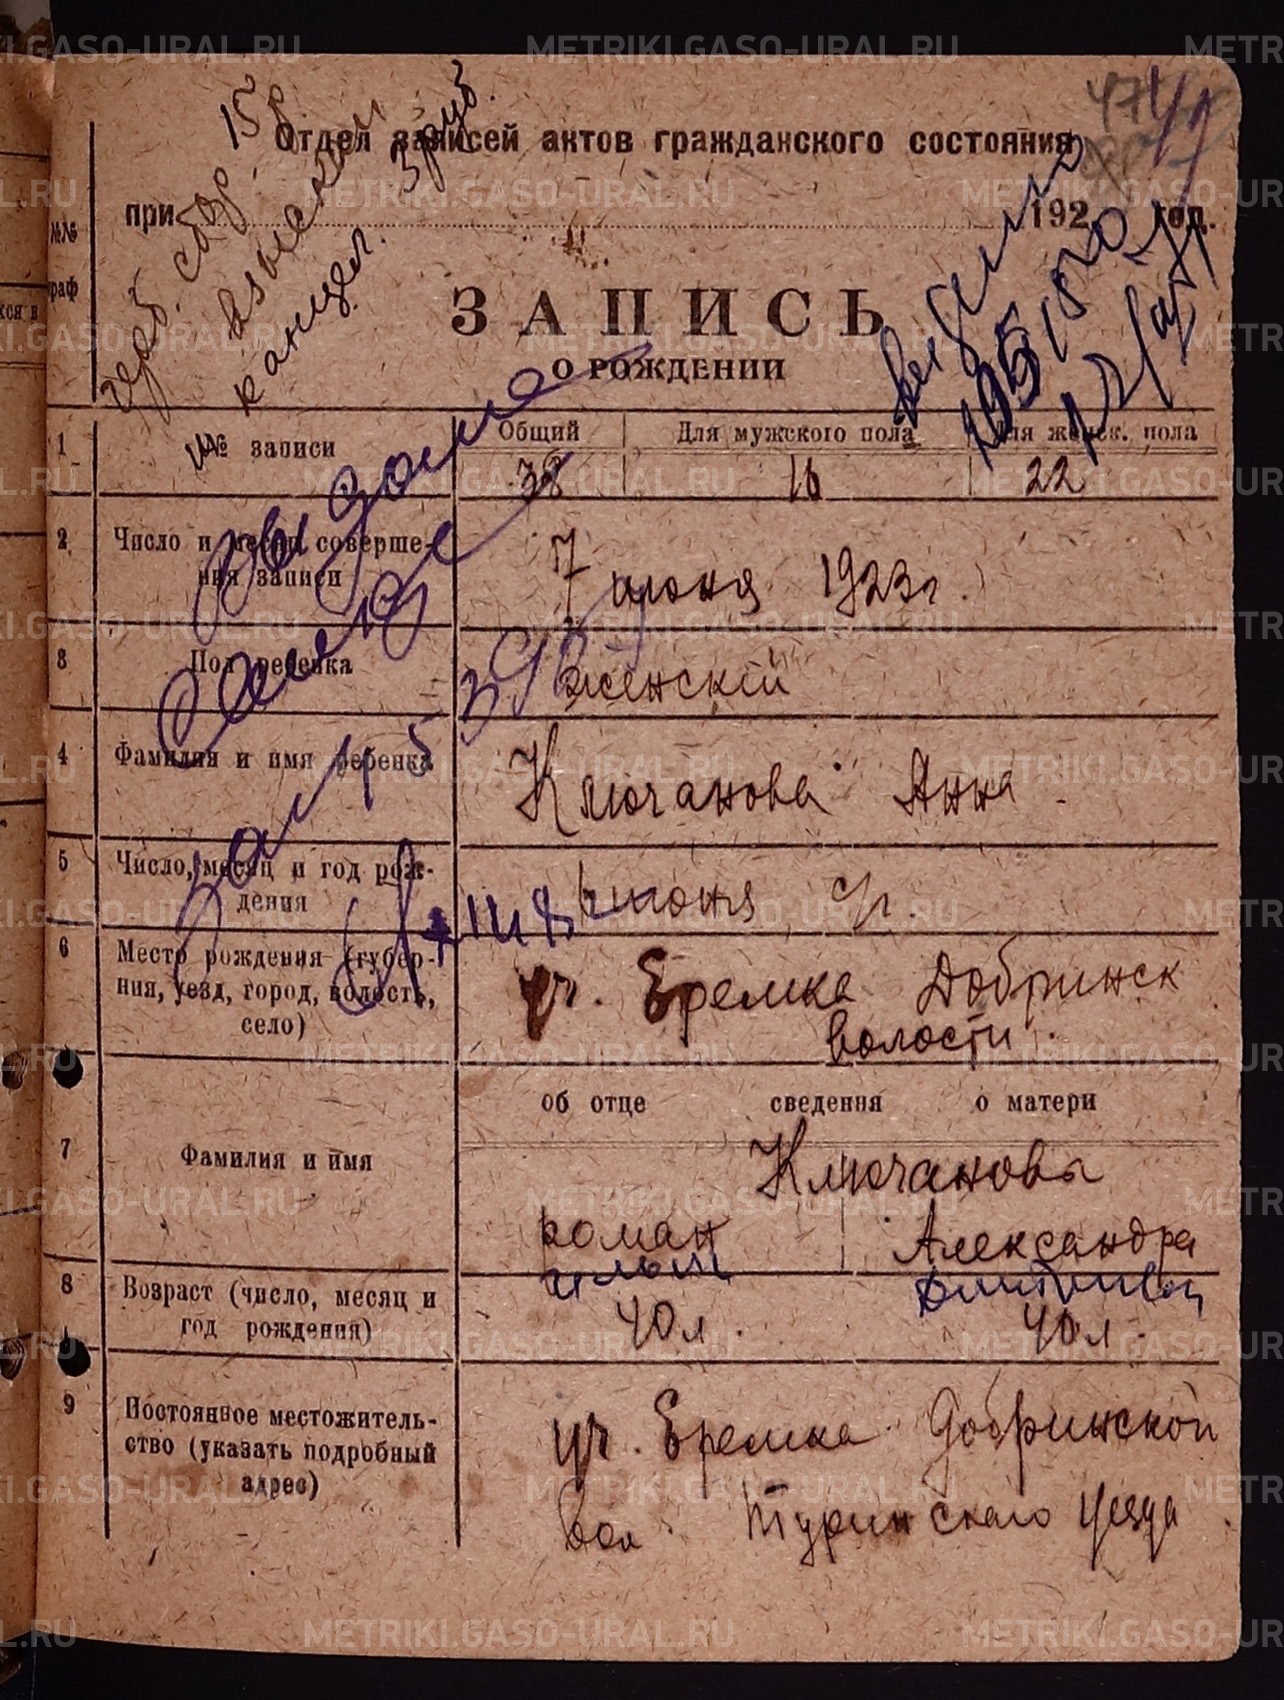 Отдел записей актов гражданского состояния
при 192 год.
герб. сбор. 15 р.
взыскан
канцел. 3 руб.
№№ граф
ЗАПИСЬ
О РОЖДЕНИИ
выдано
1 №№ записи Общий Для мужского пола Для женск. пола
38 16 22
2 Число и месяц соверше-
ния записи
7 июня 1923 г.
3 Пол ребенка женскій
4 Фамилия и имя ребенка Ключанова Анна
5 Число, месяц и год рож-
дения
июня с/г.
6 Место рождения (губер-
ния, уезд, город, волость,
село)
уч. Еремка Добринск
волости.
об отце сведения о матери
7 Фамилия и имя
Ключановы
Роман Александра
Ильич
8 Возраст (число, месяц и
год рождения)
40 л. 40 л.
9 Постоянное местожитель-
ство (указать подробный
адрес)
уч. Еремка Добринской
вол. Туринскаго уезда
METRIKI.GASO-URAL.RU